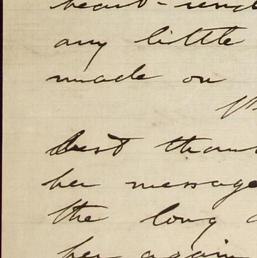 heart-rend
any little
made on
Best than
her message
the long
her again